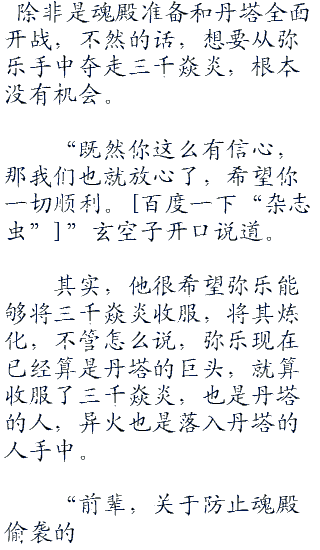 除非是魂殿准备和丹塔全面
开战，不然的话，想要从弥
乐手中夺走三千焱炎，根本
没有机会。
“既然你这么有信心，
那我们也就放心了，希望你
一切顺利。[百度一下“杂志
虫”]”玄空子开口说道。
其实，他很希望弥乐能
够将三千焱炎收服，将其炼
化，不管怎么说，弥乐现在
已经算是丹塔的巨头，就算
收服了三千焱炎，也是丹塔
的人，异火也是落入丹塔的
人手中。
“前辈，关于防止魂殿
偷袭的